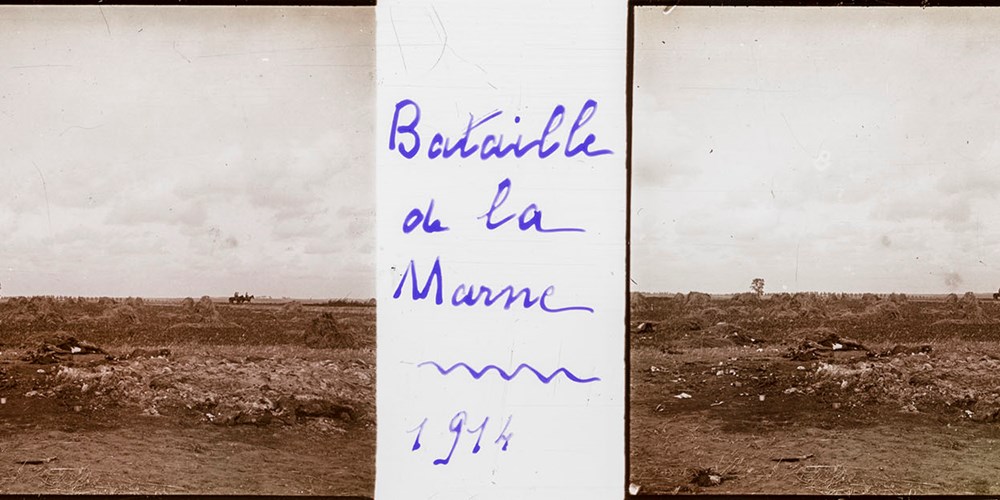 Bataille
de la
Marne
1914